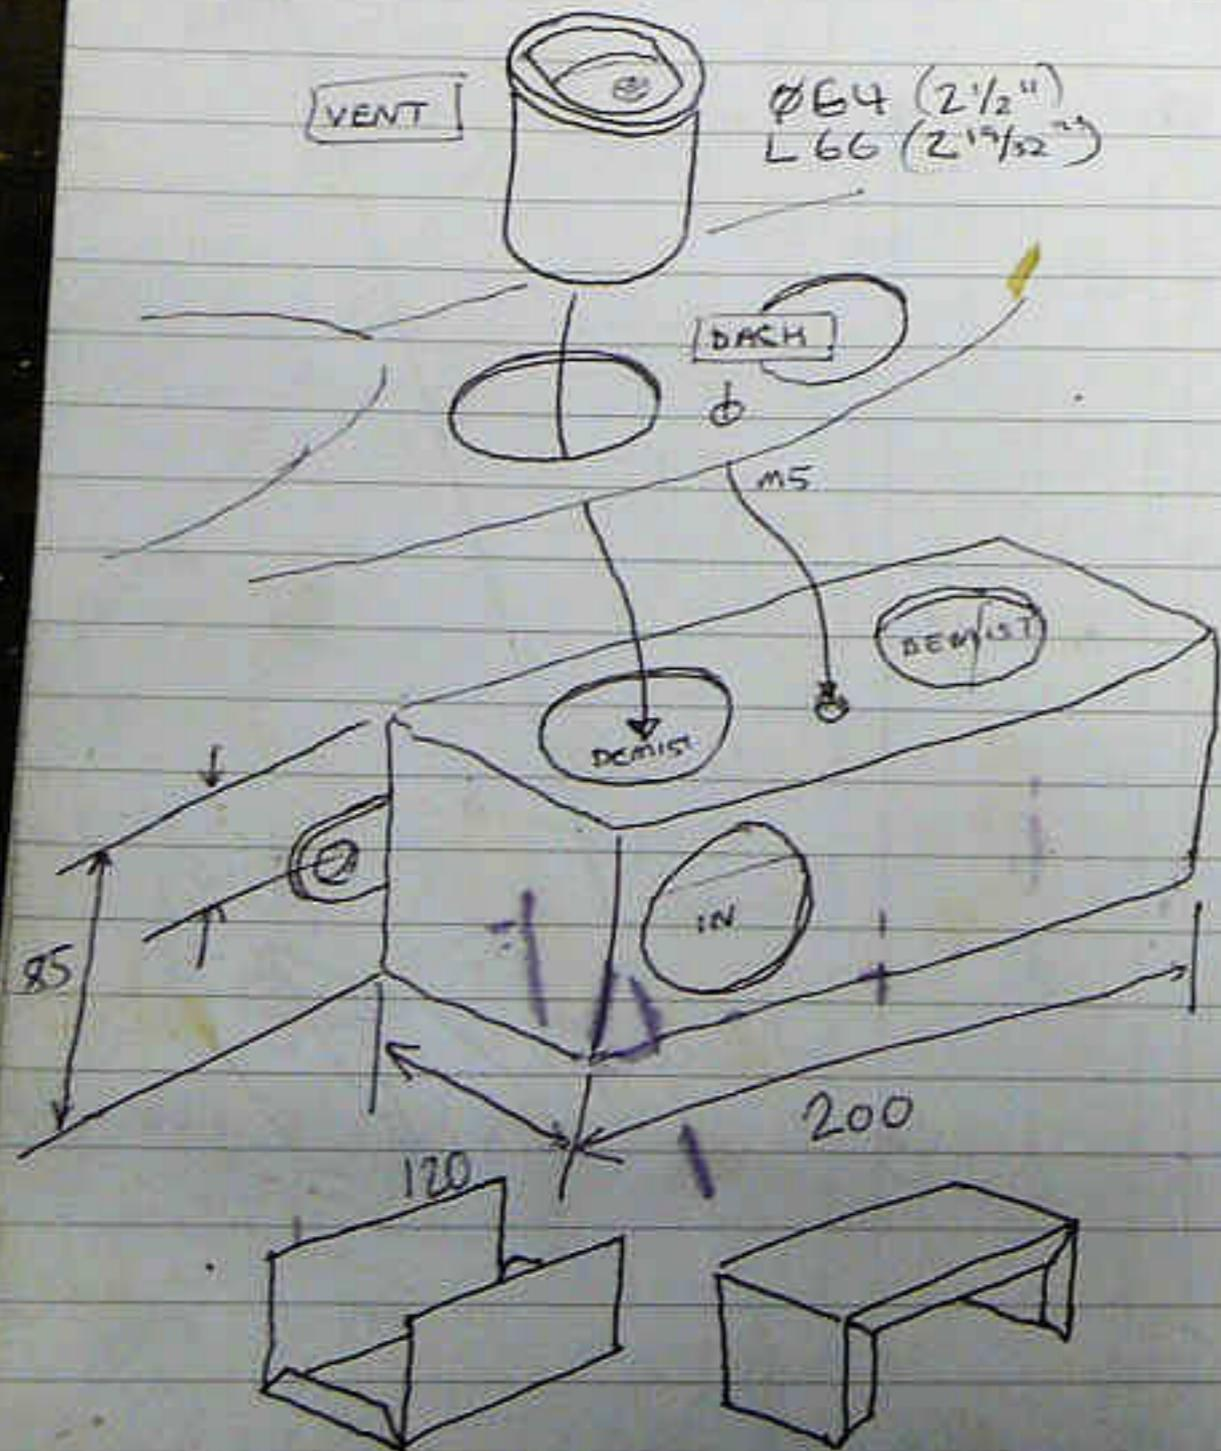 VENT
Ø64 (2 1/2")
L 66 (2 19/32")
DASH
M5
DEMIST
DEMIST
IN
85
120
200